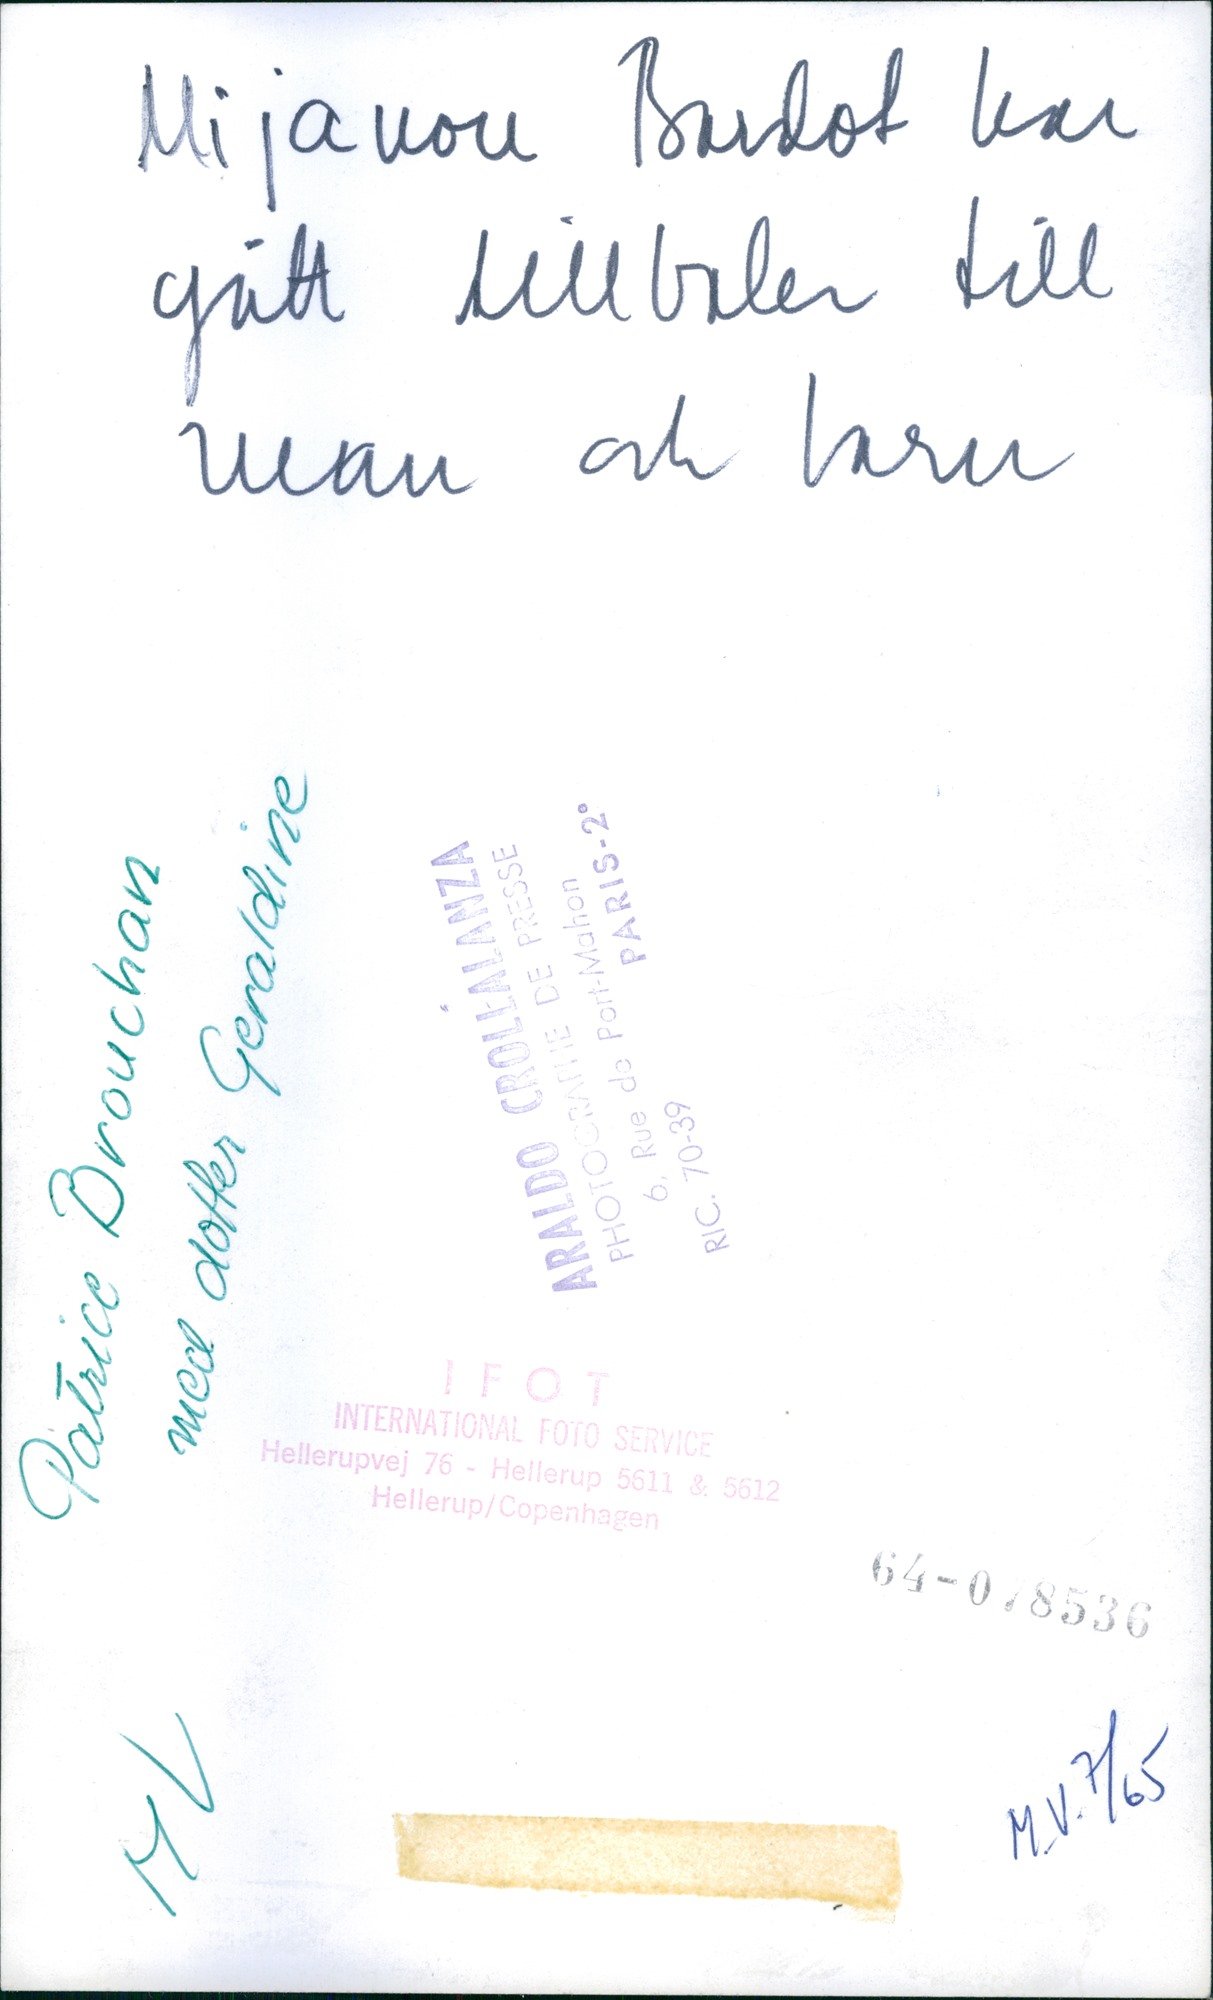 Mijanou Bardot har
gått tillbaka till
man och barn
Patrice Brouchan
med dotter Geraldine
ARALDO CROLLALANZA
PHOTOGRAPHE DE PRESSE
6, Rue de Port-Mahon
PARIS-2e
RIC. 70-39
IFOT
INTERNATIONAL FOTO SERVICE
Hellerupvej 76 - Hellerup 5611 & 5612
Hellerup/Copenhagen
MV
M.V. 7/65